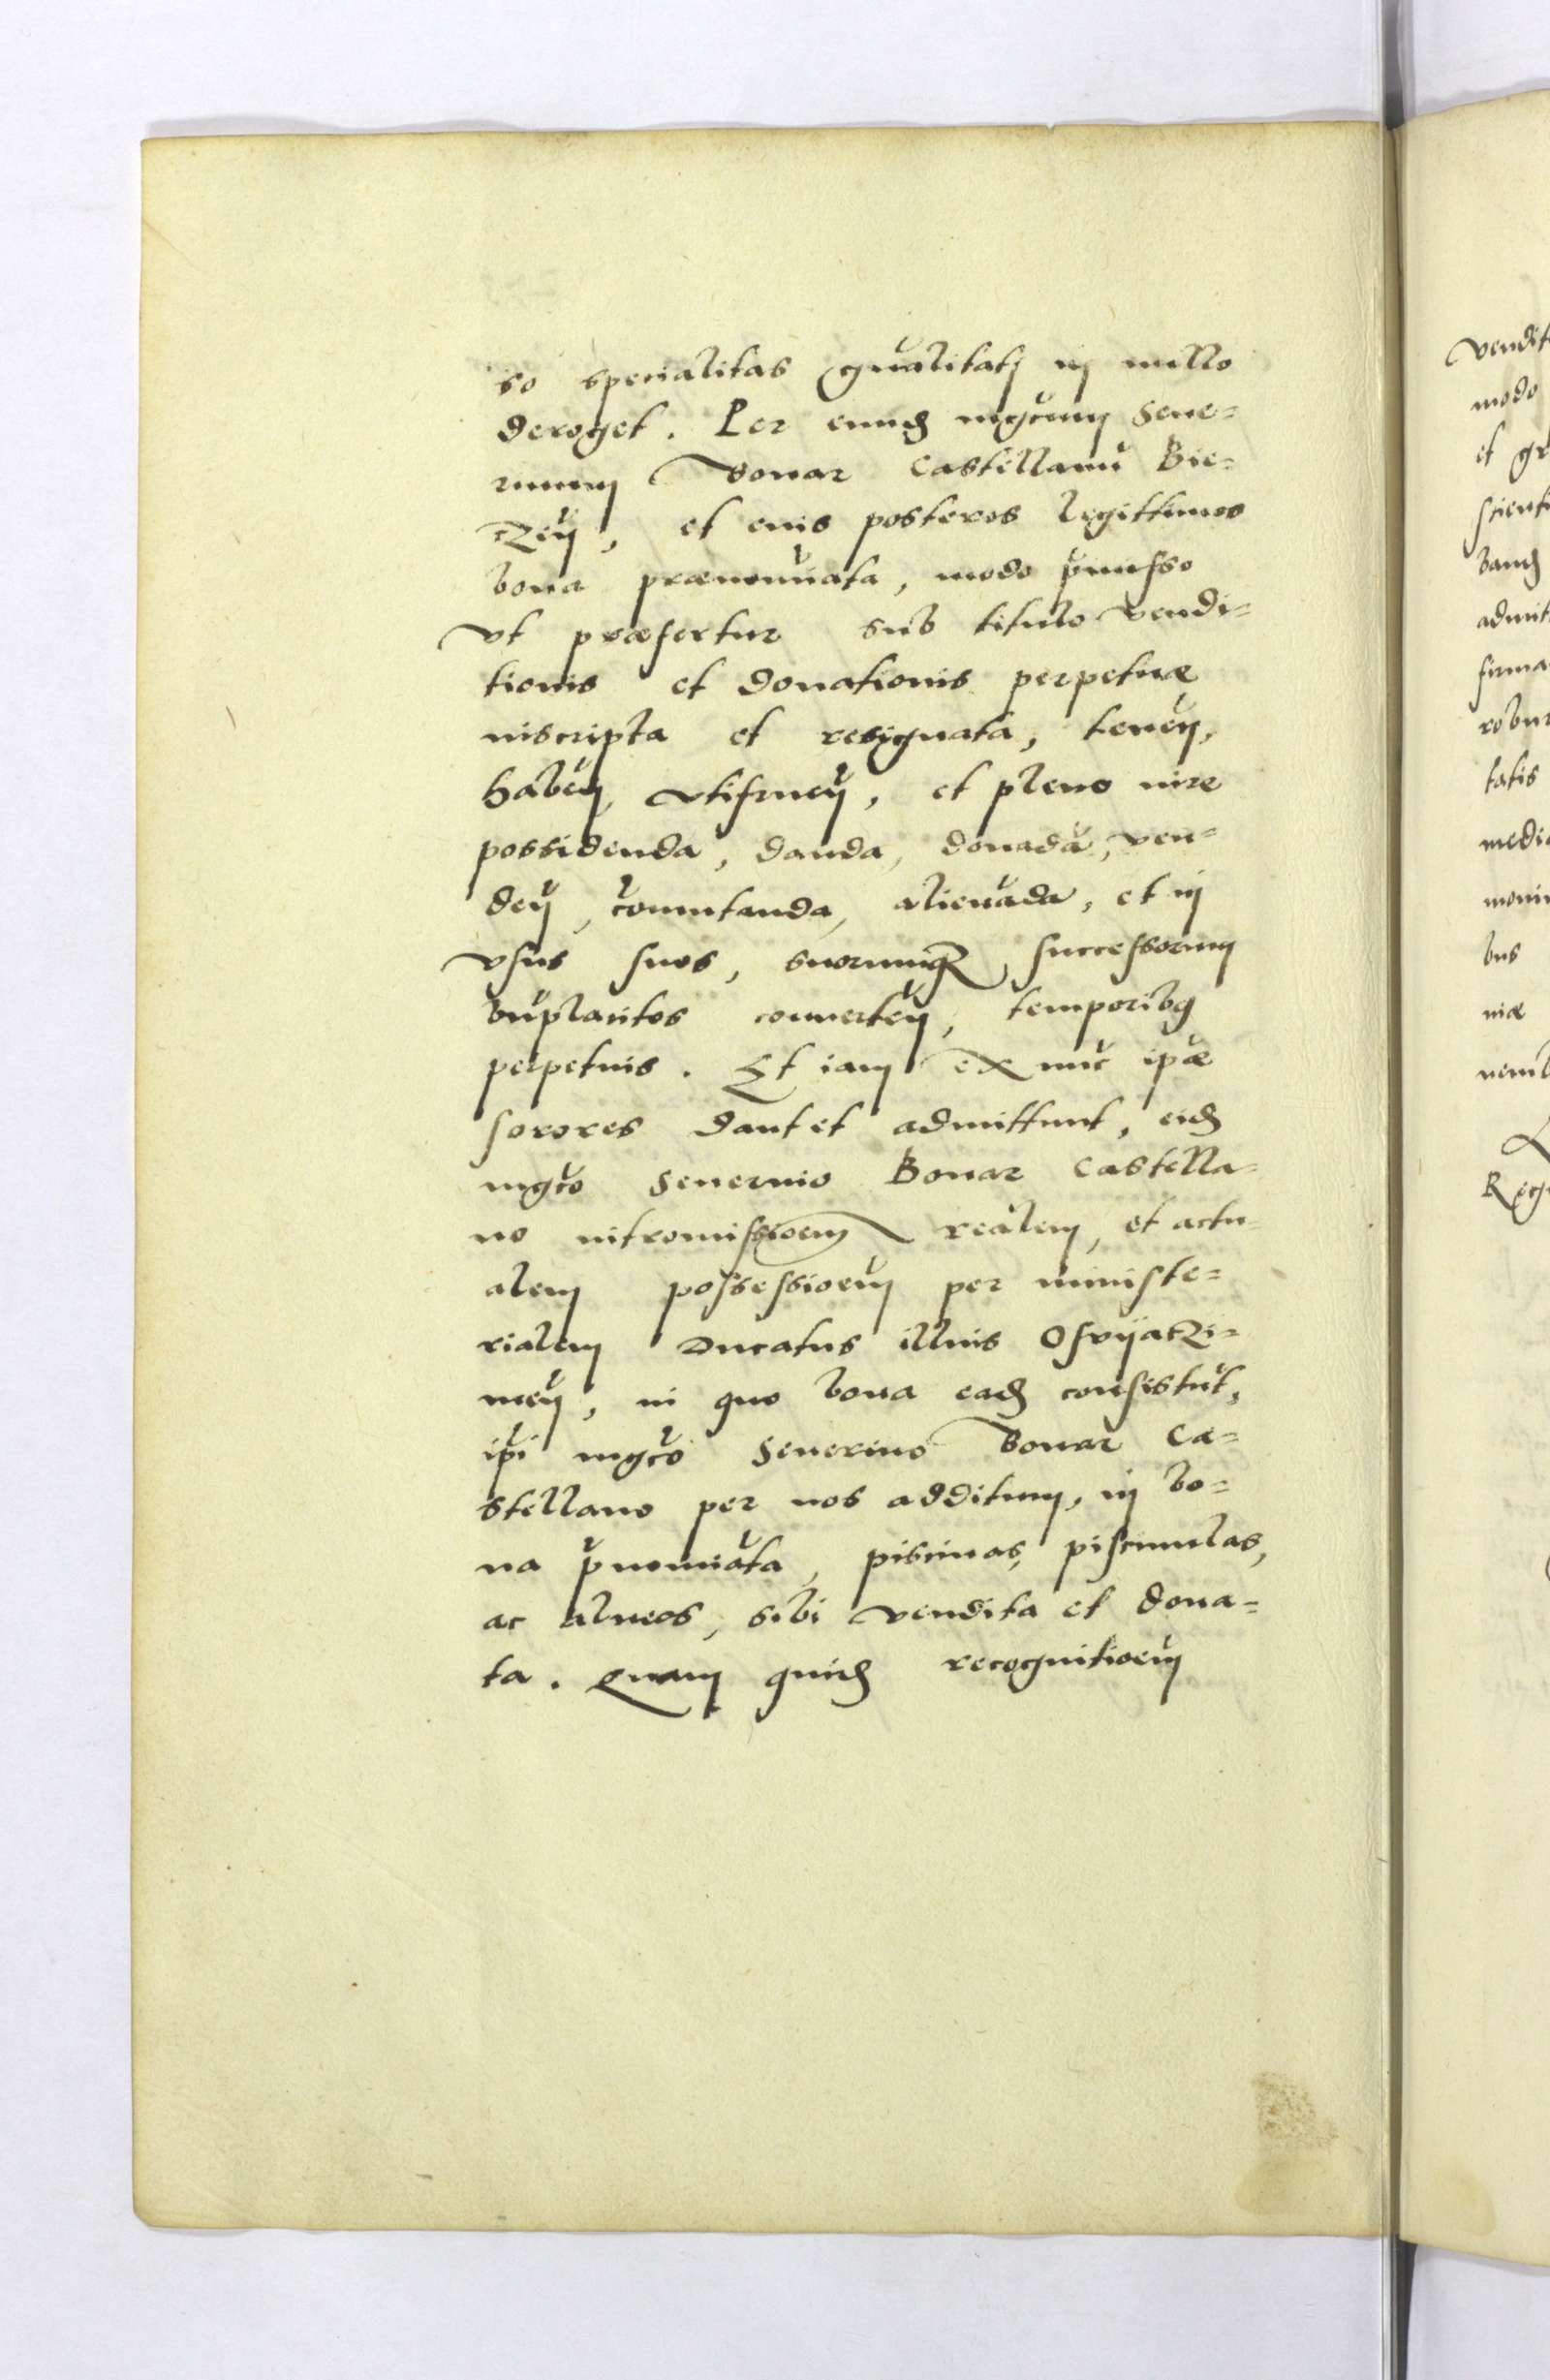 so specialitas gnalitatj in nullo
deroget. Per eund mgcum Seue=
rinum Bonar Castellanu Bie=
czen, et eius posteros legittimos
bona praenomiata, modo pmisso
vt praefertur sub titulo vendi=
tionis et donationis perpetuae
inscripta et resignata, tenen,
haben, vtifruen, et pleno iure
possidenda, danda, donada, ven=
den, comutanda, alienada, et in
vsus suos, suorumq successorum
buplacitos conuerten, temporibq
perpetuis. Et iam ex nuc ipae
sorores dant et admittunt, eid
mgco Seuerino Bonar Castella=
no intromissioem realem, et actu=
alem possessioem per ministe=
rialem Ducatus illius Osvijaczi=
men, in quo bona ead consistut,
ipi mgco Seuerino Bonar Ca=
stellano per nos additum, in bo=
na pnomiata, piscinas, piscinulas,
ac alueos, sibi vendita et dona=
ta. Quam quid recognitioem
vendit
modo
et gr
scient
band
admit
firma
robur
tatis
media
moni
bus
niae
Reg